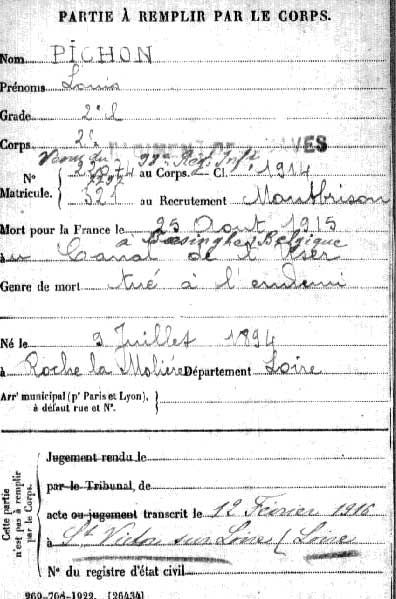 PARTIE À REMPLIR PAR LE CORPS.
Nom PICHON
Prénoms Louis
Grade 2e cl
Corps 2e RÉGIMENT DE ZOUAVES
Venu du 99e Rég. Inft
N° au Corps. Cl. 1914
Matricule. 321 au Recrutement Montbrison
Mort pour la France le 25 Aout 1915
à Boesinghe Belgique
au Canal de l'Yser
Genre de mort tué à l'ennemi
Né le 9 Juillet 1894
à Roche la Molière Département Loire
Arrt municipal (pr Paris et Lyon),
à défaut rue et N°.
Cette partie
n'est pas à remplir
par le Corps.
Jugement rendu le
par le Tribunal, de
acte ou jugement transcrit le 12 Février 1916
à St Victor sur Loire (Loire
N° du registre d'état civil
960-708-1922. [26434]